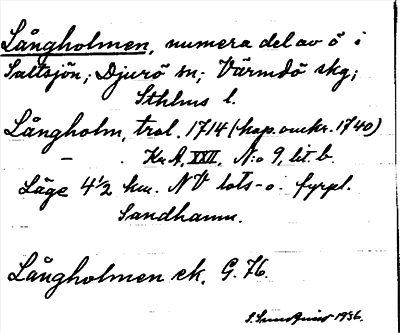 Långholmen, numera del av ö i
Saltsjön; Djurö sn; Värmdö skg;
Sthlms l.
Långholm, trol. 1714 (kop. omkr. 1740)
— Kr. A. XXII, N:o 9, lit. b.
Läge 4 1/2 km. NV lots- o. fyrpl.
Sandhamn.
Långholmen ek. G. 76.
S. Sundqvist 1936.